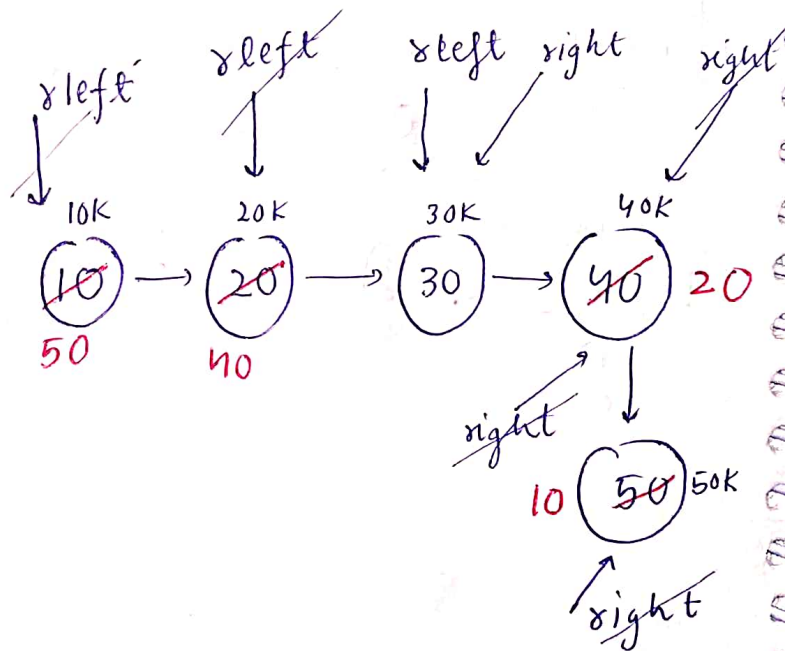 rleft rleft rleft right right
10K 20K 30K 40K
10 20 30 40 20
50 40
right
10 50 50K
right